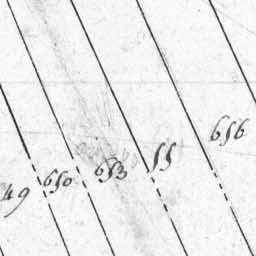 49
650
653
55
656